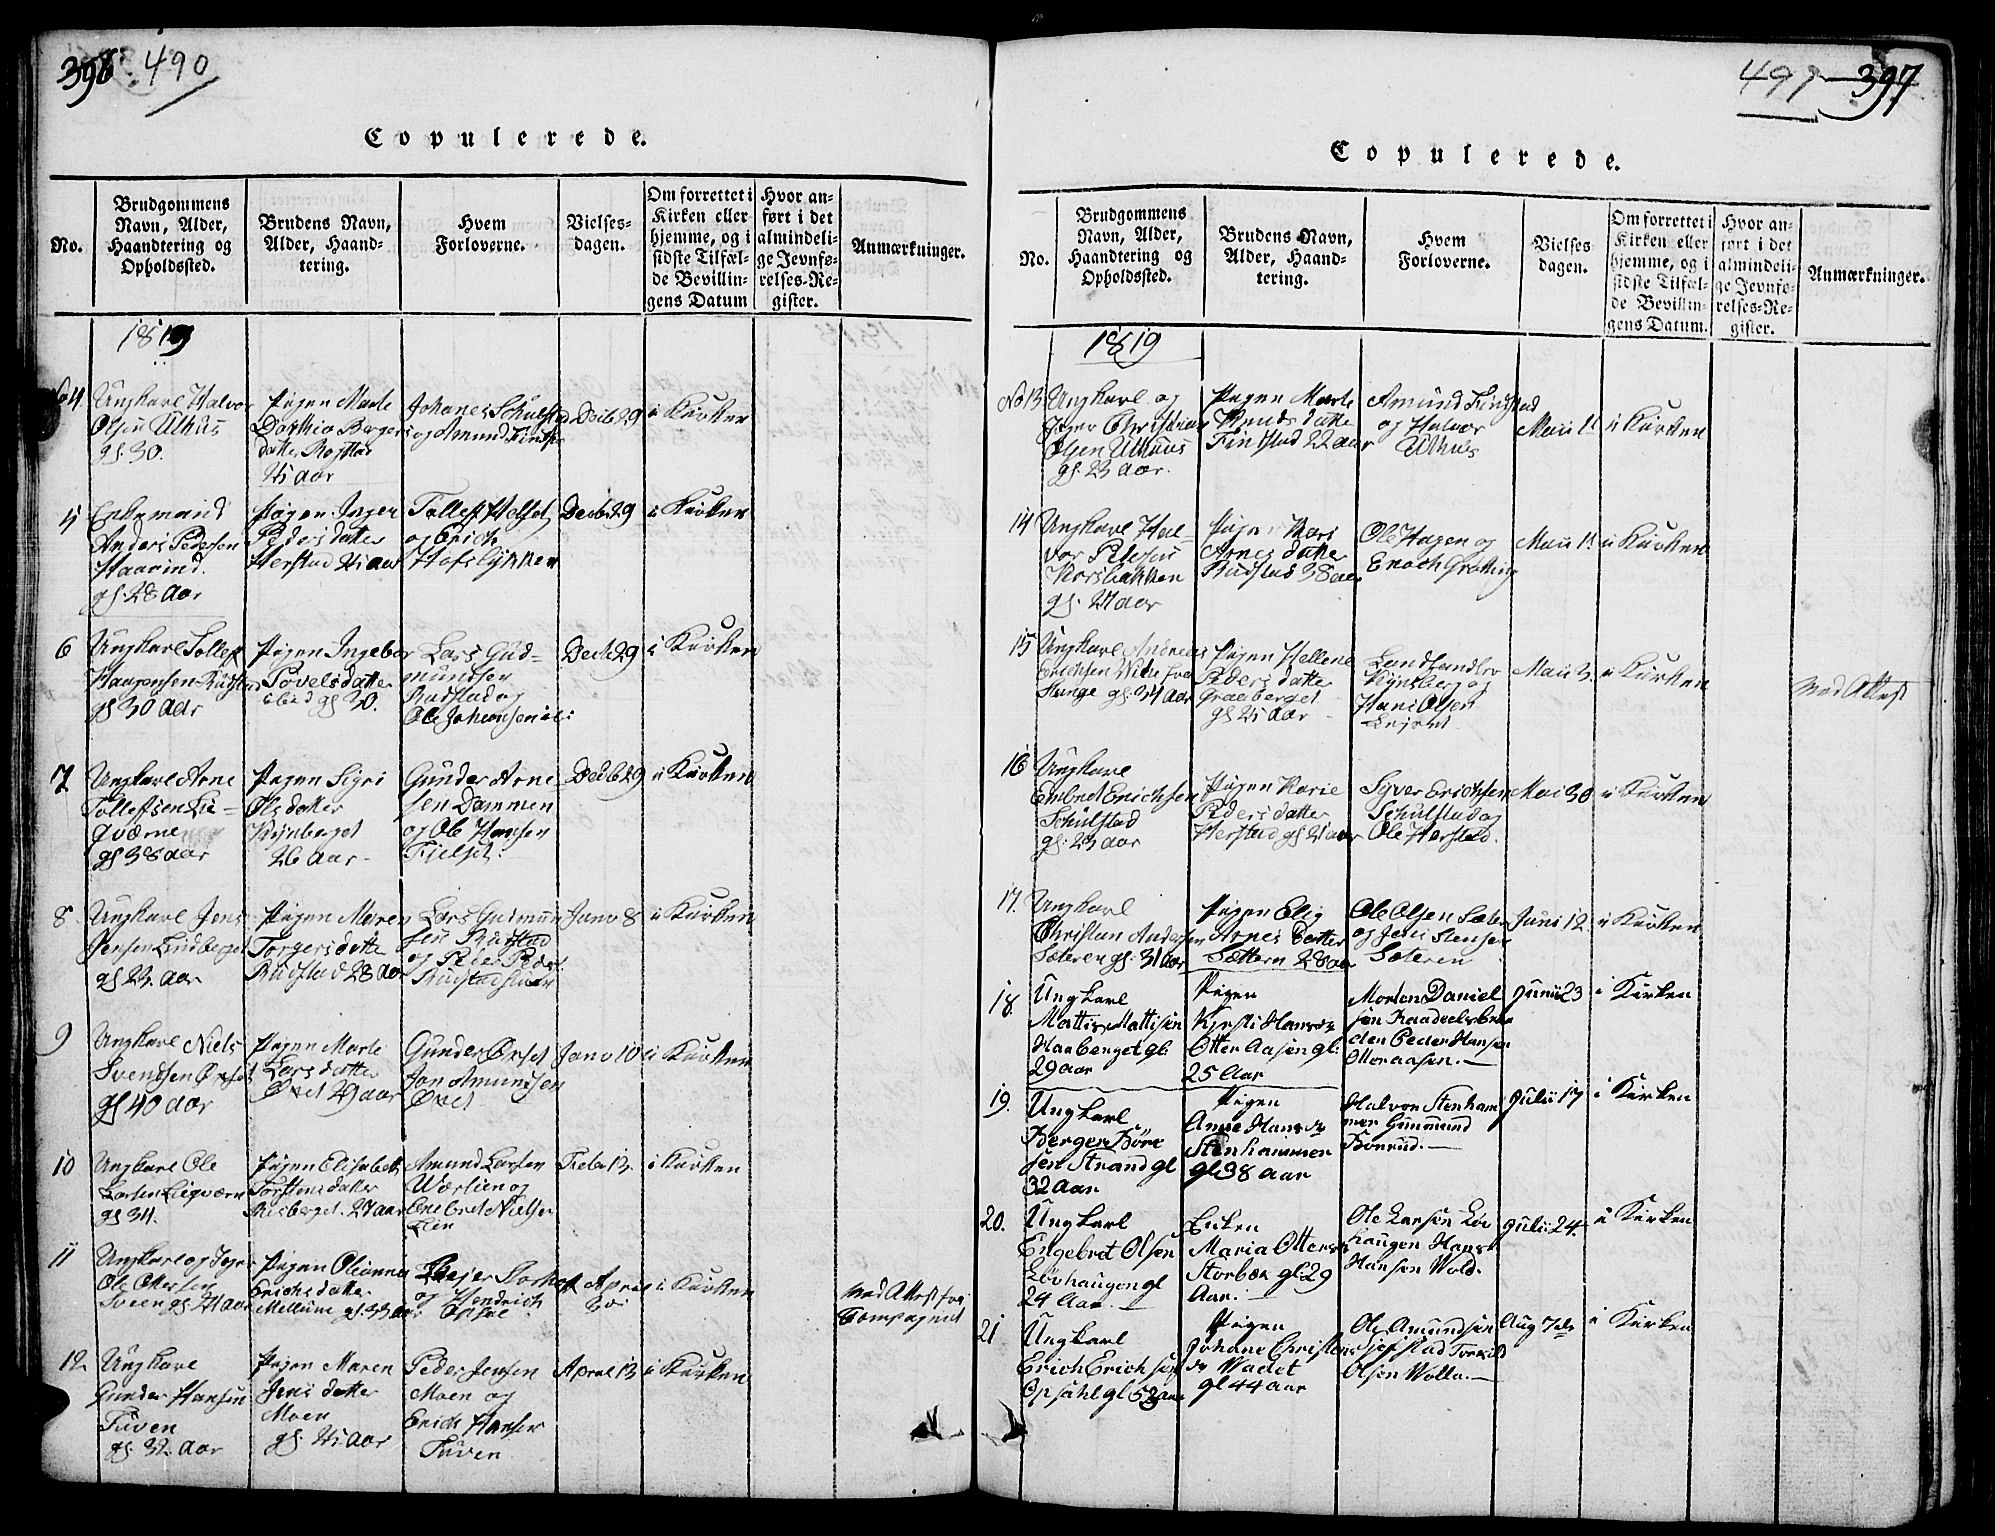 396 490
Copulerede.
No.
Brudgommens
Navn, Alder,
Haandtering og
Opholdssted.
Brudens Navn,
Alder, Haand-
tering.
Hvem
Forloverne.
Vielses-
dagen.
Om forrettet i
Kirken eller
hjemme, og i
sidste Tilfæl-
de Bevillin-
gens Datum
Hvor an-
ført i det
almindeli-
ge Jevnfø-
relses-Re-
gister.
Anmærkninger.
1819
No 4
Ungkarl Halvor
Olsen Ulhuus
gl. 30.
Pigen Marte
Dorthia Bergers
datter
25 aar
Johanes Schulstad
og Amund Finstad
Decb 29
i Kirken
5
Enkemand
Anders Pedersen
Haarind.
gl. 28 Aar
Pigen Inger
Peders datter
Herstad 25 aar
Tollef Helset
og Erich
Hofslykken
Decb 29
i Kirken
6
Ungkarl Tollef
Haagensen Rudstad
gl 30 Aar
Pigen Ingebor
Povels datter
ibid gl 30.
Lars Gud-
mundsen
Rudstad og
Ole Johansen
Decb 29
i Kirken
7
Ungkarl Arne
Tollefsen Lie-
qværne
gl 38 aar
Pigen Sigri
Ols datter
26 Aar
Gunder Arne
sen Dammen
og Ole Hansen
Fielset.
Decb 29
i Kirken
8
Ungkarl Jens
Jensen Lindberget
gl 23. aar
Pigen Maren
Torgers datter
Rudstad 28 aar
Lars Gudmun
sen Rudstad
og Peder Peder
Janv 8
i Kirken
9
Ungkarl Niels
Svendsen Øxset
gl 40 aar
Pigen Marte
Lars datter
Øxet 29 aar
Gunder Øxset
Jon Amundsen
Øxet
Janv 10
i Kirken
10
Ungkarl Ole
Larsen Lieqværn
gl 34.
Pigen Elisabeth
Torstens datter
Risberget. 27 aar
Amund Larsen
og
Embret Nielsen
Lien
Febr 13
i Kirken
11
Ungkarl og Jæger
Ole Ottersen
Sveen gl 24 aar
Pigen Oleanna
Erichs datter
Mellum gl. 33 aar
og Hendrich
Opsal
April
i Kirken
Med Attest fra
Compagniet
12
Ungkarl
Gunder Hansen
Tuven
gl. 32. aar
Pigen Maren
Jens datter
Moen
gl. 25 aar
Peder Jensen
Moen og
Erich Hansen
Tuven
April 13
i Kirken
491 397
Copulerede.
No.
Brudgommens
Navn, Alder,
Haandtering og
Opholdssted.
Brudens Navn,
Alder, Haand-
tering.
Hvem
Forloverne.
Vielses
dagen.
Om forrettet i
Kirken eller
hjemme, og i
sidste Tilfæl-
de Bevillin-
gens Datum.
Hvor an-
ført i det
almindeli-
ge Jevnfø-
relses-Re-
gister.
Anmærkninger.
1819
No 13
Ungkarl og
Jæger Christian
Olsen Ulhuus
gl. 23 aar.
Pigen Marte
Knuds datter
Finstad 22 aar
Amund Finstad
og Halvor
Ulhus
Maii 1
i Kirken
14
Ungkarl Hal-
vor Pedersen
Korsbakken
gl. 27 aar
Pigen Kari
Arnes datter
Rudstad 38 aar
Ole Hagen og
Enoch Grøtting
Maii 1
i Kirken
15
Ungkarl Andreas
Erichsen fra
Stange gl. 34 aar
Pigen Hellene
Peders datter
Graaberget
gl 25 aar
Landhandler
og
Hans Olsen
Maii 3
i Kirken
Med Attest
16
Ungkarl
Embret Erichsen
Schulstad
gl. 23 aar
Pigen Karie
Peders datter
Herstad gl 21 aar
Syver Erichsen
Schulstad og
Ole Herstad.
Mai 30
i Kirken
17.
Ungkarl
Christian Andersen
Sæteren gl. 31 aar
Pigen Elig
Arnes datter
Sættern 28 aar
Ole Olsen Sæter
og Jens Stensen
Sæteren
Juni 12
i Kirken
18.
Ungkarl
Mattis Mattisen
Haaberget gl.
29 aar
Pigen
Kjersti Hansdr
Otter Aasen gl.
25 Aar
Morten Daniel
sen Raadvelsbrae
den Peder Hansen
Otteraasen.
Junii 23
i Kirken
19.
Ungkarl
Berger Børe
sen Strand gl
32 Aar
Pigen
Anne Hansdr
Stenhammer
gl 38 aar
Halvor Stenham
mer Gunmund
Bonrud.
Julii 17
i Kirken
20.
Ungkarl
Engebret Olsen
Løvhaugen gl
24 Aar.
Enken
Maria Ottersdr
Storbek gl: 29
Aar.
Ole Larsen Løv
haugen Hans
Hansen Wold.
Julii 24.
i Kirken
21
Ungkarl
Erich Erichsen
Opsahl gl 53 aar
Pigen
Johane Christens
dr Wadet
gl 44 aar
Ole Amundsen
Sjefstad
Olsen Wolla.
Aug 7de
i Kirken